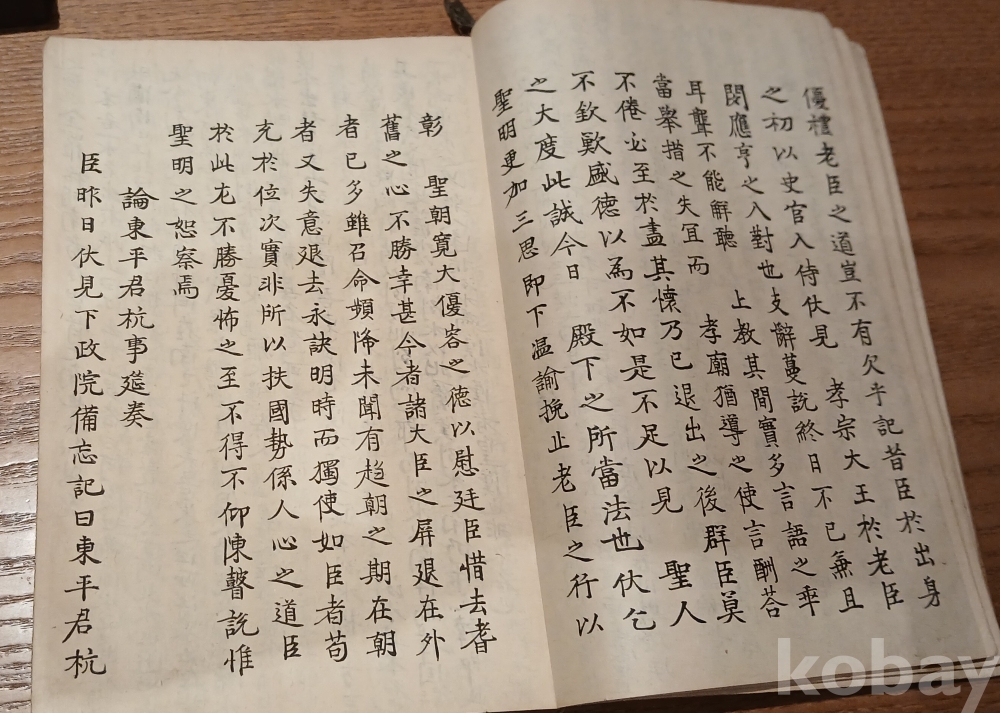 優禮老臣之道豈不有欠乎記昔臣於出身
之初以史官入侍伏見 孝宗大王於老臣
閔應亨之入對也支辭蔓說終日不已無且
耳聾不能解聽 上敎其間實多言語之乖
當擧措之失宜而 孝廟猶導之使言酬答
不倦必至於盡其懷乃已退出之後群臣莫
不欽歎盛德以爲不如是不足以見 聖人
之大度此誠今日 殿下之所當法也伏乞
聖明更加三思卽下溫諭挽止老臣之行以
彰 聖朝寬大優容之德以慰廷臣惜去耆
舊之心不勝幸甚今者諸大臣之屛退在外
者已多雖召命頻降未聞有趍朝之期在朝
者又失意退去永訣明時而獨使如臣者苟
充於位次實非所以扶國勢係人心之道臣
於此尤不勝憂怖之至不得不仰陳瞽說惟
聖明之恕察焉
論東平君杭事筵奏
臣昨日伏見下政院備忘記曰東平君杭
kobay